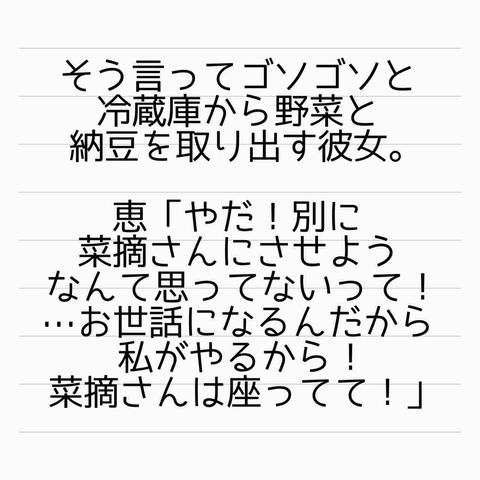 そう言ってゴソゴソと
冷蔵庫から野菜と
納豆を取り出す彼女。
恵「やだ！別に
菜摘さんにさせよう
なんて思ってないって！
…お世話になるんだから
私がやるから！
菜摘さんは座ってて！」